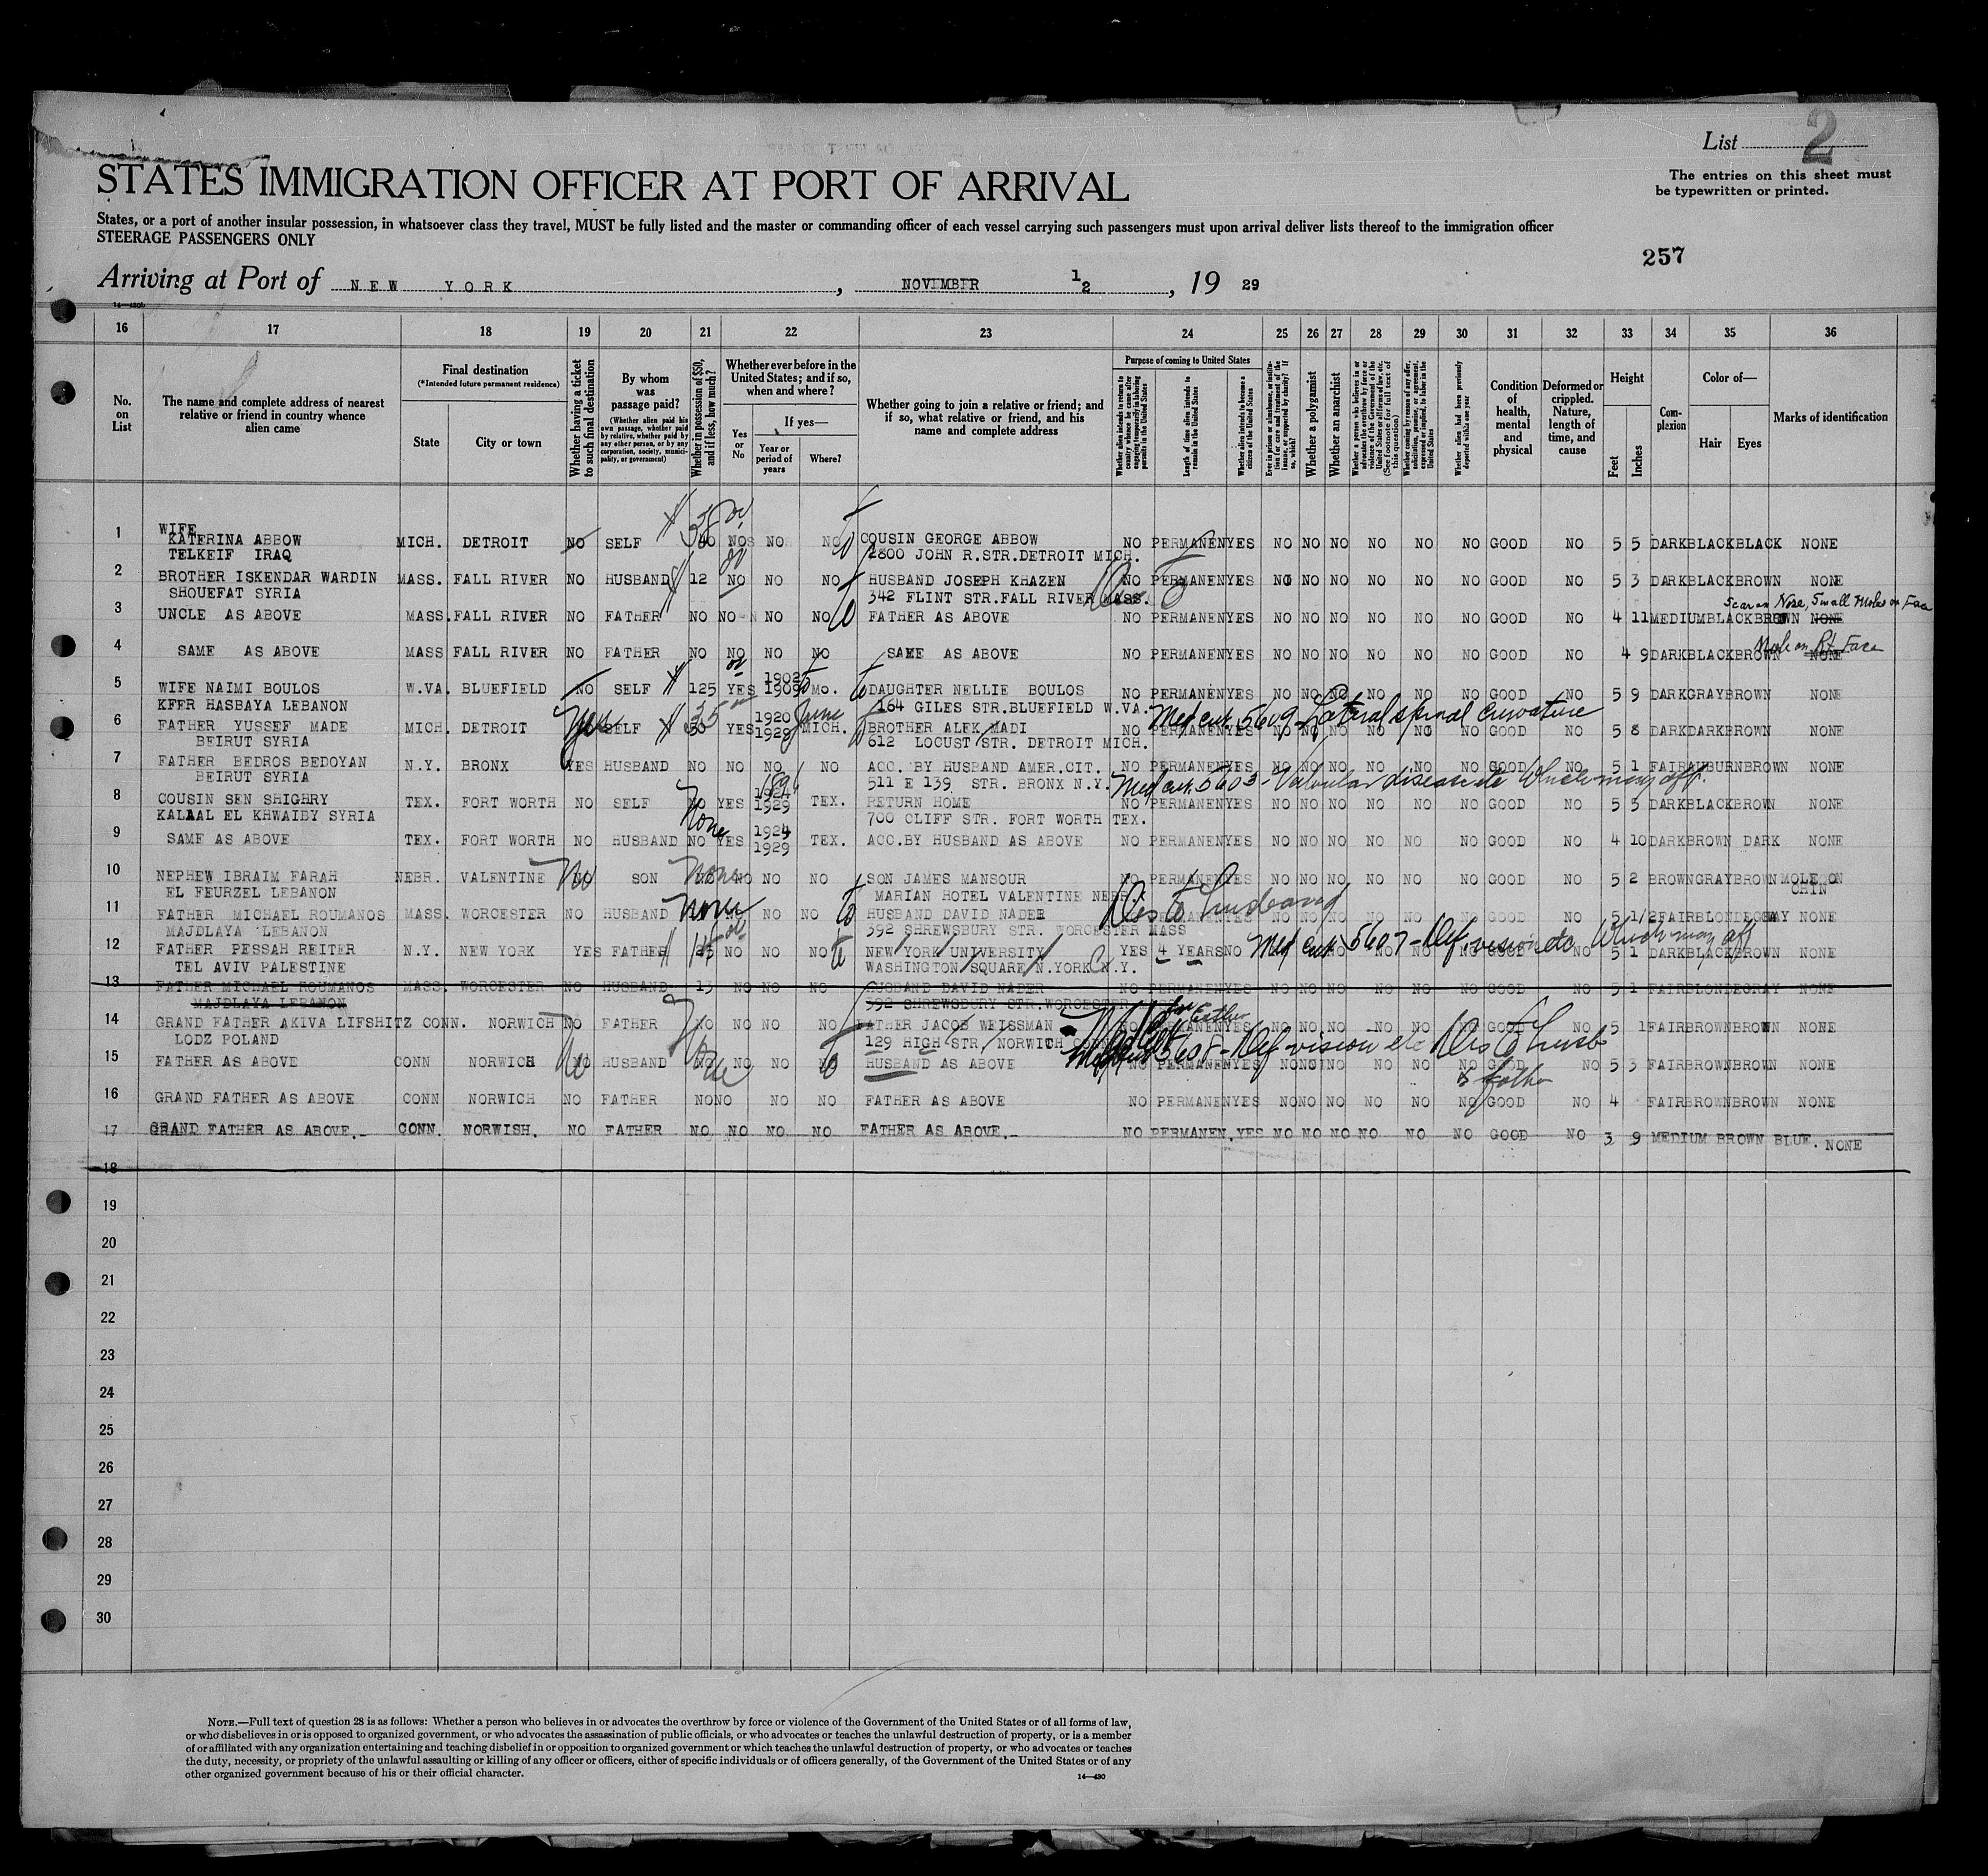 List 2
The entries on this sheet must
be typewritten or printed.
STATES IMMIGRATION OFFICER AT PORT OF ARRIVAL
States, or a port of another insular possession, in whatsoever class they travel, MUST be fully listed and the master or commanding officer of each vessel carrying such passengers must upon arrival deliver lists thereof to the immigration officer
STEERAGE PASSENGERS ONLY
257
Arriving at Port of NEW YORK, NOVEMBER 12, 19 29
14—430b
16 17 18 19 20 21 22 23 24 25 26 27 28 29 30 31 32 33 34 35 36
No. on List
The name and complete address of nearest relative or friend in country whence alien came
Final destination
(*Intended future permanent residence)
State City or town
Whether having a ticket to such final destination
By whom was passage paid?
(Whether alien paid his own passage, whether paid by relative, whether paid by any other person, or by any corporation, society, municipality, or government)
Whether in possession of $50, and if less, how much?
Whether ever before in the United States; and if so, when and where?
Yes or No
If yes—
Year or period of years
Where?
Whether going to join a relative or friend; and if so, what relative or friend, and his name and complete address
Purpose of coming to United States
Whether alien intends to return to country whence he came after engaging temporarily in laboring pursuits in the United States
Length of time alien intends to remain in the United States
Whether alien intends to become a citizen of the United States
Ever in prison or almshouse, or institution for care and treatment of the insane, or supported by charity? If so, which?
Whether a polygamist
Whether an anarchist
(See footnote for full text of this question)
Whether coming by reason of any offer, solicitation, promise, or agreement, expressed or implied, to labor in the United States
Whether alien had been previously deported within one year
Condition of health, mental and physical
Deformed or crippled. Nature, length of time, and cause
Height
Feet Inches
Complexion
Color of—
Hair Eyes
Marks of identification
1 WIFE
KATERINA ABBOW MICH. DETROIT NO SELF NO NO NO COUSIN GEORGE ABBOW NO PERMANEN YES NO NO NO NO NO NO GOOD NO 5 5 DARK BLACK BLACK NONE
TELKEIF IRAQ 2800 JOHN R.STR.DETROIT MICH.
2 BROTHER ISKENDAR WARDIN MASS. FALL RIVER NO HUSBAND 12 NO NO NO HUSBAND JOSEPH KHAZEN NO PERMANEN YES NO NO NO NO NO NO GOOD NO 5 3 DARK BLACK BROWN NONE
SHOUEFAT SYRIA 342 FLINT STR.FALL RIVER MASS.
Scar on Nose, Small Moles on Face
3 UNCLE AS ABOVE MASS. FALL RIVER NO FATHER NO NO NO NO FATHER AS ABOVE NO PERMANEN YES NO NO NO NO NO NO GOOD NO 4 11 MEDIUM BLACK BROWN NONE
Mole on Rt Face
4 SAME AS ABOVE MASS FALL RIVER NO FATHER NO NO NO NO SAME AS ABOVE NO PERMANEN YES NO NO NO NO NO NO GOOD NO 4 9 DARK BLACK BROWN NONE
5 WIFE NAIMI BOULOS W.VA. BLUEFIELD NO SELF 125 YES 1902 1909 Mo. DAUGHTER NELLIE BOULOS NO PERMANEN YES NO NO NO NO NO NO GOOD NO 5 9 DARK GRAY BROWN NONE
KFER HASBAYA LEBANON 164 GILES STR.BLUEFIELD W.VA.
Med cert 5609 Lateral spinal curvature
6 FATHER YUSSEF MADE MICH. DETROIT Yes SELF 50 YES 1920 1929 June MICH. BROTHER ALEK MADI NO PERMANEN YES NO NO NO NO NO NO GOOD NO 5 8 DARK DARK BROWN NONE
BEIRUT SYRIA 612 LOCUST STR. DETROIT MICH.
7 FATHER BEDROS BEDOYAN N.Y. BRONX YES HUSBAND NO NO NO NO ACC. BY HUSBAND AMER.CIT. NO PERMANEN YES NO NO NO NO NO NO GOOD NO 5 1 FAIR AUBURN BROWN NONE
BEIRUT SYRIA 511 E 139 STR. BRONX N.Y.
Med cert. 5603 - Valvular disease etc which may aff.
8 COUSIN SEN SHIGHRY TEX. FORT WORTH NO SELF NO YES 1924 1929 TEX. RETURN HOME NO PERMANEN YES NO NO NO NO NO NO GOOD NO 5 3 DARK BLACK BROWN NONE
KALAAL EL KHWAIBY SYRIA 700 CLIFF STR. FORT WORTH TEX.
9 SAME AS ABOVE TEX. FORT WORTH NO HUSBAND None NO YES 1924 1929 TEX. ACC.BY HUSBAND AS ABOVE NO PERMANEN YES NO NO NO NO NO NO GOOD NO 4 10 DARK BROWN DARK NONE
10 NEPHEW IBRAIM FARAH NEBR. VALENTINE No SON None NO NO NO SON JAMES MANSOUR NO PERMANEN YES NO NO NO NO NO NO GOOD NO 5 2 BROWN GRAY BROWN MOLE ON CHIN
EL FEURZEL LEBANON MARIAN HOTEL VALENTINE NEBR.
Dis to husband
11 FATHER MICHAEL ROUMANOS MASS. WORCESTER NO HUSBAND None NO NO HUSBAND DAVID NADER PERMANEN YES NO NO NO NO NO NO GOOD NO 5 1/2 FAIR BLONDE GRAY NONE
MAJDLAYA LEBANON 392 SHREWSBURY STR. WORCESTER MASS
Med cert 5607 - Def. vision etc which may aff
12 FATHER PESSAH REITER N.Y. NEW YORK YES FATHER NO NO NO NEW YORK UNIVERSITY YES 4 YEARS NO NO NO NO NO GOOD NO 5 1 DARK BLACK BROWN NONE
TEL AVIV PALESTINE WASHINGTON SQUARE N.YORK N.Y.
13 FATHER MICHAEL ROUMANOS MASS. WORCESTER NO HUSBAND 13 NO NO NO HUSBAND DAVID NADER NO PERMANEN YES NO NO NO NO NO NO GOOD NO 5 1 FAIR BLONDE GRAY NONE
MAJDLAYA LEBANON 392 SHREWSBURY STR.WORCESTER
14 GRAND FATHER AKIVA LIFSHITZ CONN. NORWICH NO FATHER NO NO NO NO FATHER JACOB WEISSMAN NO PERMANEN YES NO NO NO NO NO NO GOOD NO 5 1 FAIR BROWN BROWN NONE
LODZ POLAND 129 HIGH STR. NORWICH CONN
Med cert 5608 - Def vision etc Dis to husb
15 FATHER AS ABOVE CONN NORWICH NO HUSBAND NO NO NO HUSBAND AS ABOVE NO PERMANEN YES NO NO NO NO NO NO GOOD NO 5 3 FAIR BROWN BROWN NONE
& father
16 GRAND FATHER AS ABOVE CONN NORWICH NO FATHER NO NO NO NO FATHER AS ABOVE NO PERMANEN YES NO NO NO NO NO NO GOOD NO 4 FAIR BROWN BROWN NONE
17 GRAND FATHER AS ABOVE.- CONN. NORWISH. NO FATHER NO NO NO NO FATHER AS ABOVE.- NO PERMANEN. YES NO NO NO NO NO NO GOOD NO 3 9 MEDIUM BROWN BLUE. NONE
18
19
20
21
22
23
24
25
26
27
28
29
30
NOTE.—Full text of question 28 is as follows: Whether a person who believes in or advocates the overthrow by force or violence of the Government of the United States or of all forms of law,
or who disbelieves in or is opposed to organized government, or who advocates the assassination of public officials, or who advocates or teaches the unlawful destruction of property, or is a member
of or affiliated with any organization entertaining and teaching disbelief in or opposition to organized government or which teaches the unlawful destruction of property, or who advocates or teaches
the duty, necessity, or propriety of the unlawful assaulting or killing of any officer or officers, either of specific individuals or of officers generally, of the Government of the United States or of any
other organized government because of his or their official character.
14—430